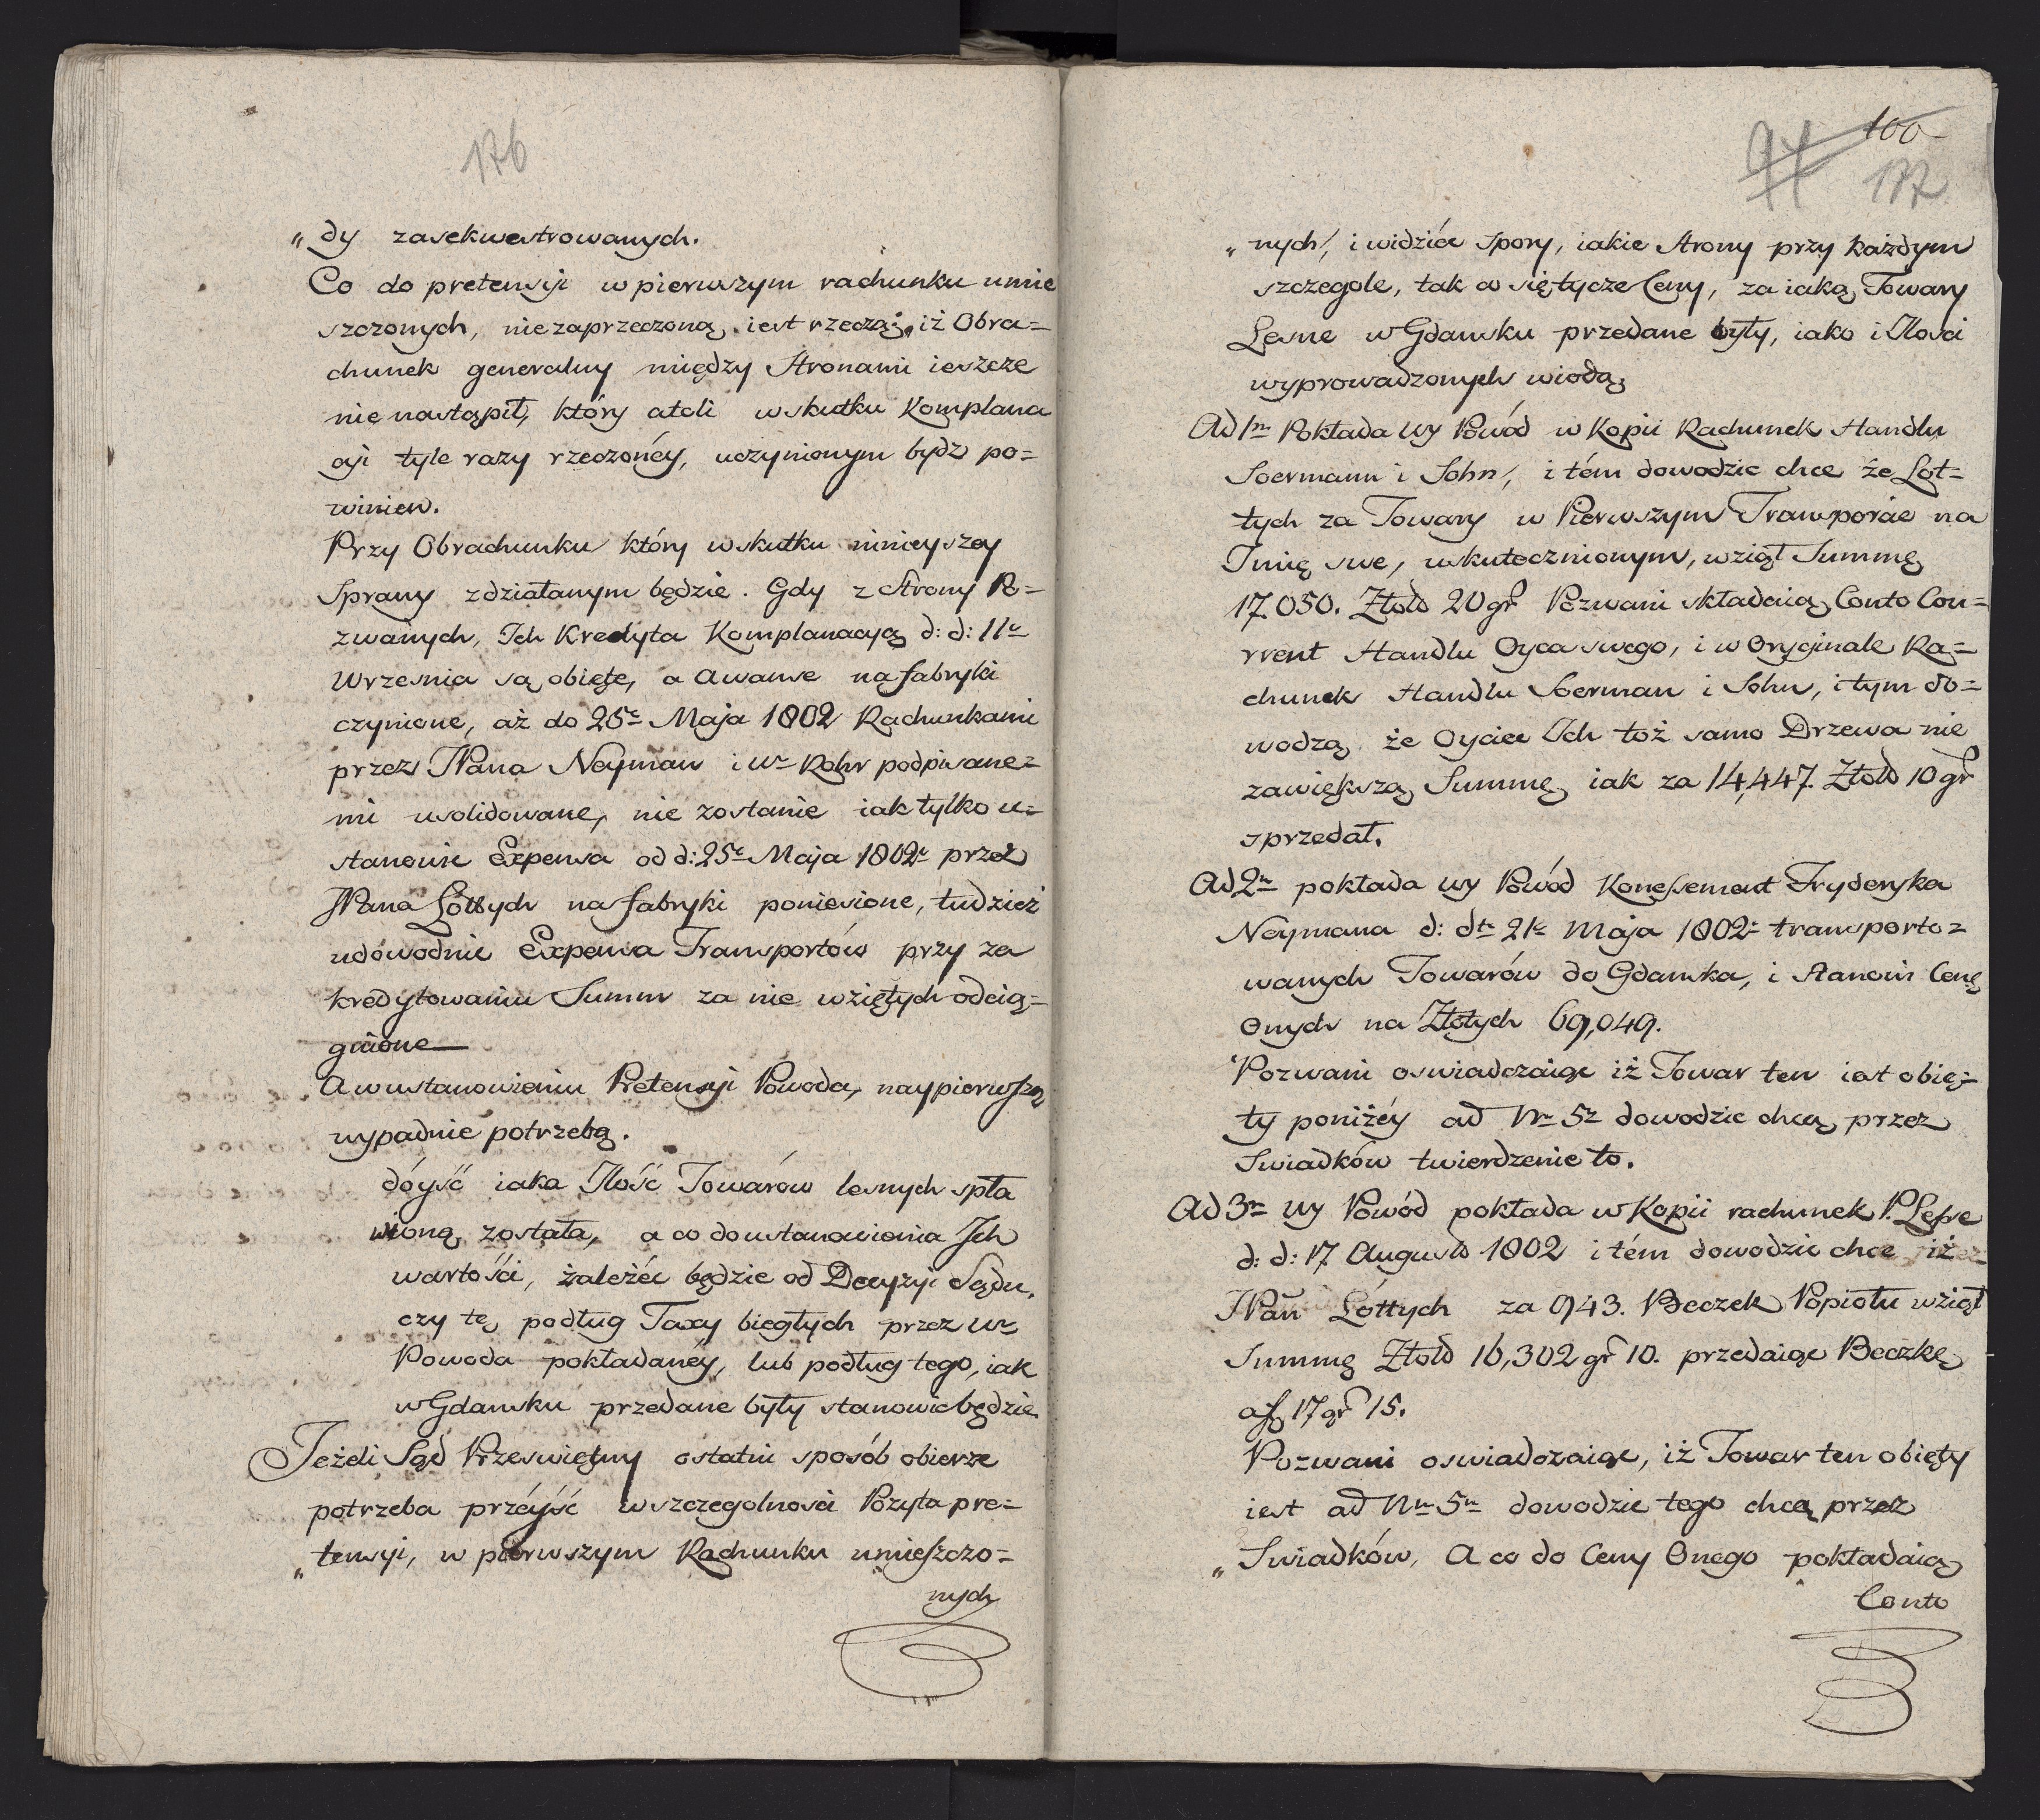 176
„dy zasekwestrowanych.
Co do pretensyi w pierwszym rachunku umie
szczonych, niezaprzeczoną iest rzeczą, iż Obra=
chunek generalny między Stronami ieszcze
nie nastąpił, który atoli w skutku Komplana
cyi tyle razy rzeczonéy, uczynionym bydz po=
winien.
Przy Obrachunku który w skutku ninieyszey
Sprawy zdziałanym będzie. Gdy z Strony Po=
zwanych, Ich Kredyta Komplanacyą d: d: 11e
Wrzesnia są obięte, a awanse na fabryki
czynione, aż do 25e Maja 1802 Rachunkami
przez JPana Neyman i Wo Rohr podpisane=
mi wolidowane, nie zostanie iak tylko u=
stanowić Expensa od d: 25e Maja 1802e przez
JPana Lóttych na fabryki poniesione, tudzież
udowodnić Expensa Transportów przy za
kredytowaniu Summ za nie wziętych odcią=
gnione—
A w ustanowieniu Pretensyi Powoda, naypierwszą
wypadnie potrzebą.
dóyść iaka Ilość Towarów lesnych spła
wioną została, a co do ustanowienia Ich
wartości, żależéć będzie od Decyzyi Sądu,
czy tę podług Taxy biegłych przez Wo
Powoda pokładanéy, lub podług tego, iak
w Gdansku przedane były stanowic będzie
Jeżeli Sąd Przeswiętny ostatni sposób obierze
potrzeba przéyść w szczegolnosci Pozyta pre=
„tensyi, w pierwszym Rachunku umieszczo=
nych
100
94
177
„nych, i widziéć spory, iakie Strony przy każdym
szczegole, tak co się tycze Ceny, za iaką Towary
Lesne w Gdansku przedane były, iako i Ilosci
wyprowadzonych wiodą
Ad 1m Pokłada Wy Powód w Kopii Rachunek Handlu
Soermann i Sohn, i tém dowodzic chce że Lot=
tych za Towary w Pierwszym Transporcie na
Imię swe, uskutecznionym, wziął Summę
17.050. Złold 20 gr Pozwani składaią Conto Cou=
rrent Handlu Oyca swego, i w Oryginale Ra=
chunek Handlu Soerman i Sohn, i tym do=
wodzą że Oyciec Ich toż samo Drzewa nie
zawiększą Summę iak za 14,447. Złold 10 gr
sprzedał.
Ad 2m pokłada Wy Powód Konessement Fryderyka
Neymana d: dto 21e Maja 1802e transporto=
wanych Towarów do Gdanska, i stanowi Cenę
Onych na Złotych 69,049.
Pozwani oswiadczaiąc iż Towar ten iest obię=
ty poniżéy ad Nm 5m dowodzic chcą przez
Swiadków twierdzenie to.
Ad 3m Wy Powód pokłada w Kopii rachunek P. Lesse
d: d: 17 Augusto 1802 i tém dowodzic chce iż
JPan Lóttych za 943. Beczek Popiołu wziął
Summę Złold 16,302 gr 10. przedaiąc Beczkę
a f 17 gr 15.
Pozwani oswiadczaiąc, iż Towar ten obięty
iest ad Nm 5m dowodzic tego chcą przez
„Swiadków, A co do Ceny Onego pokładaią
Conto